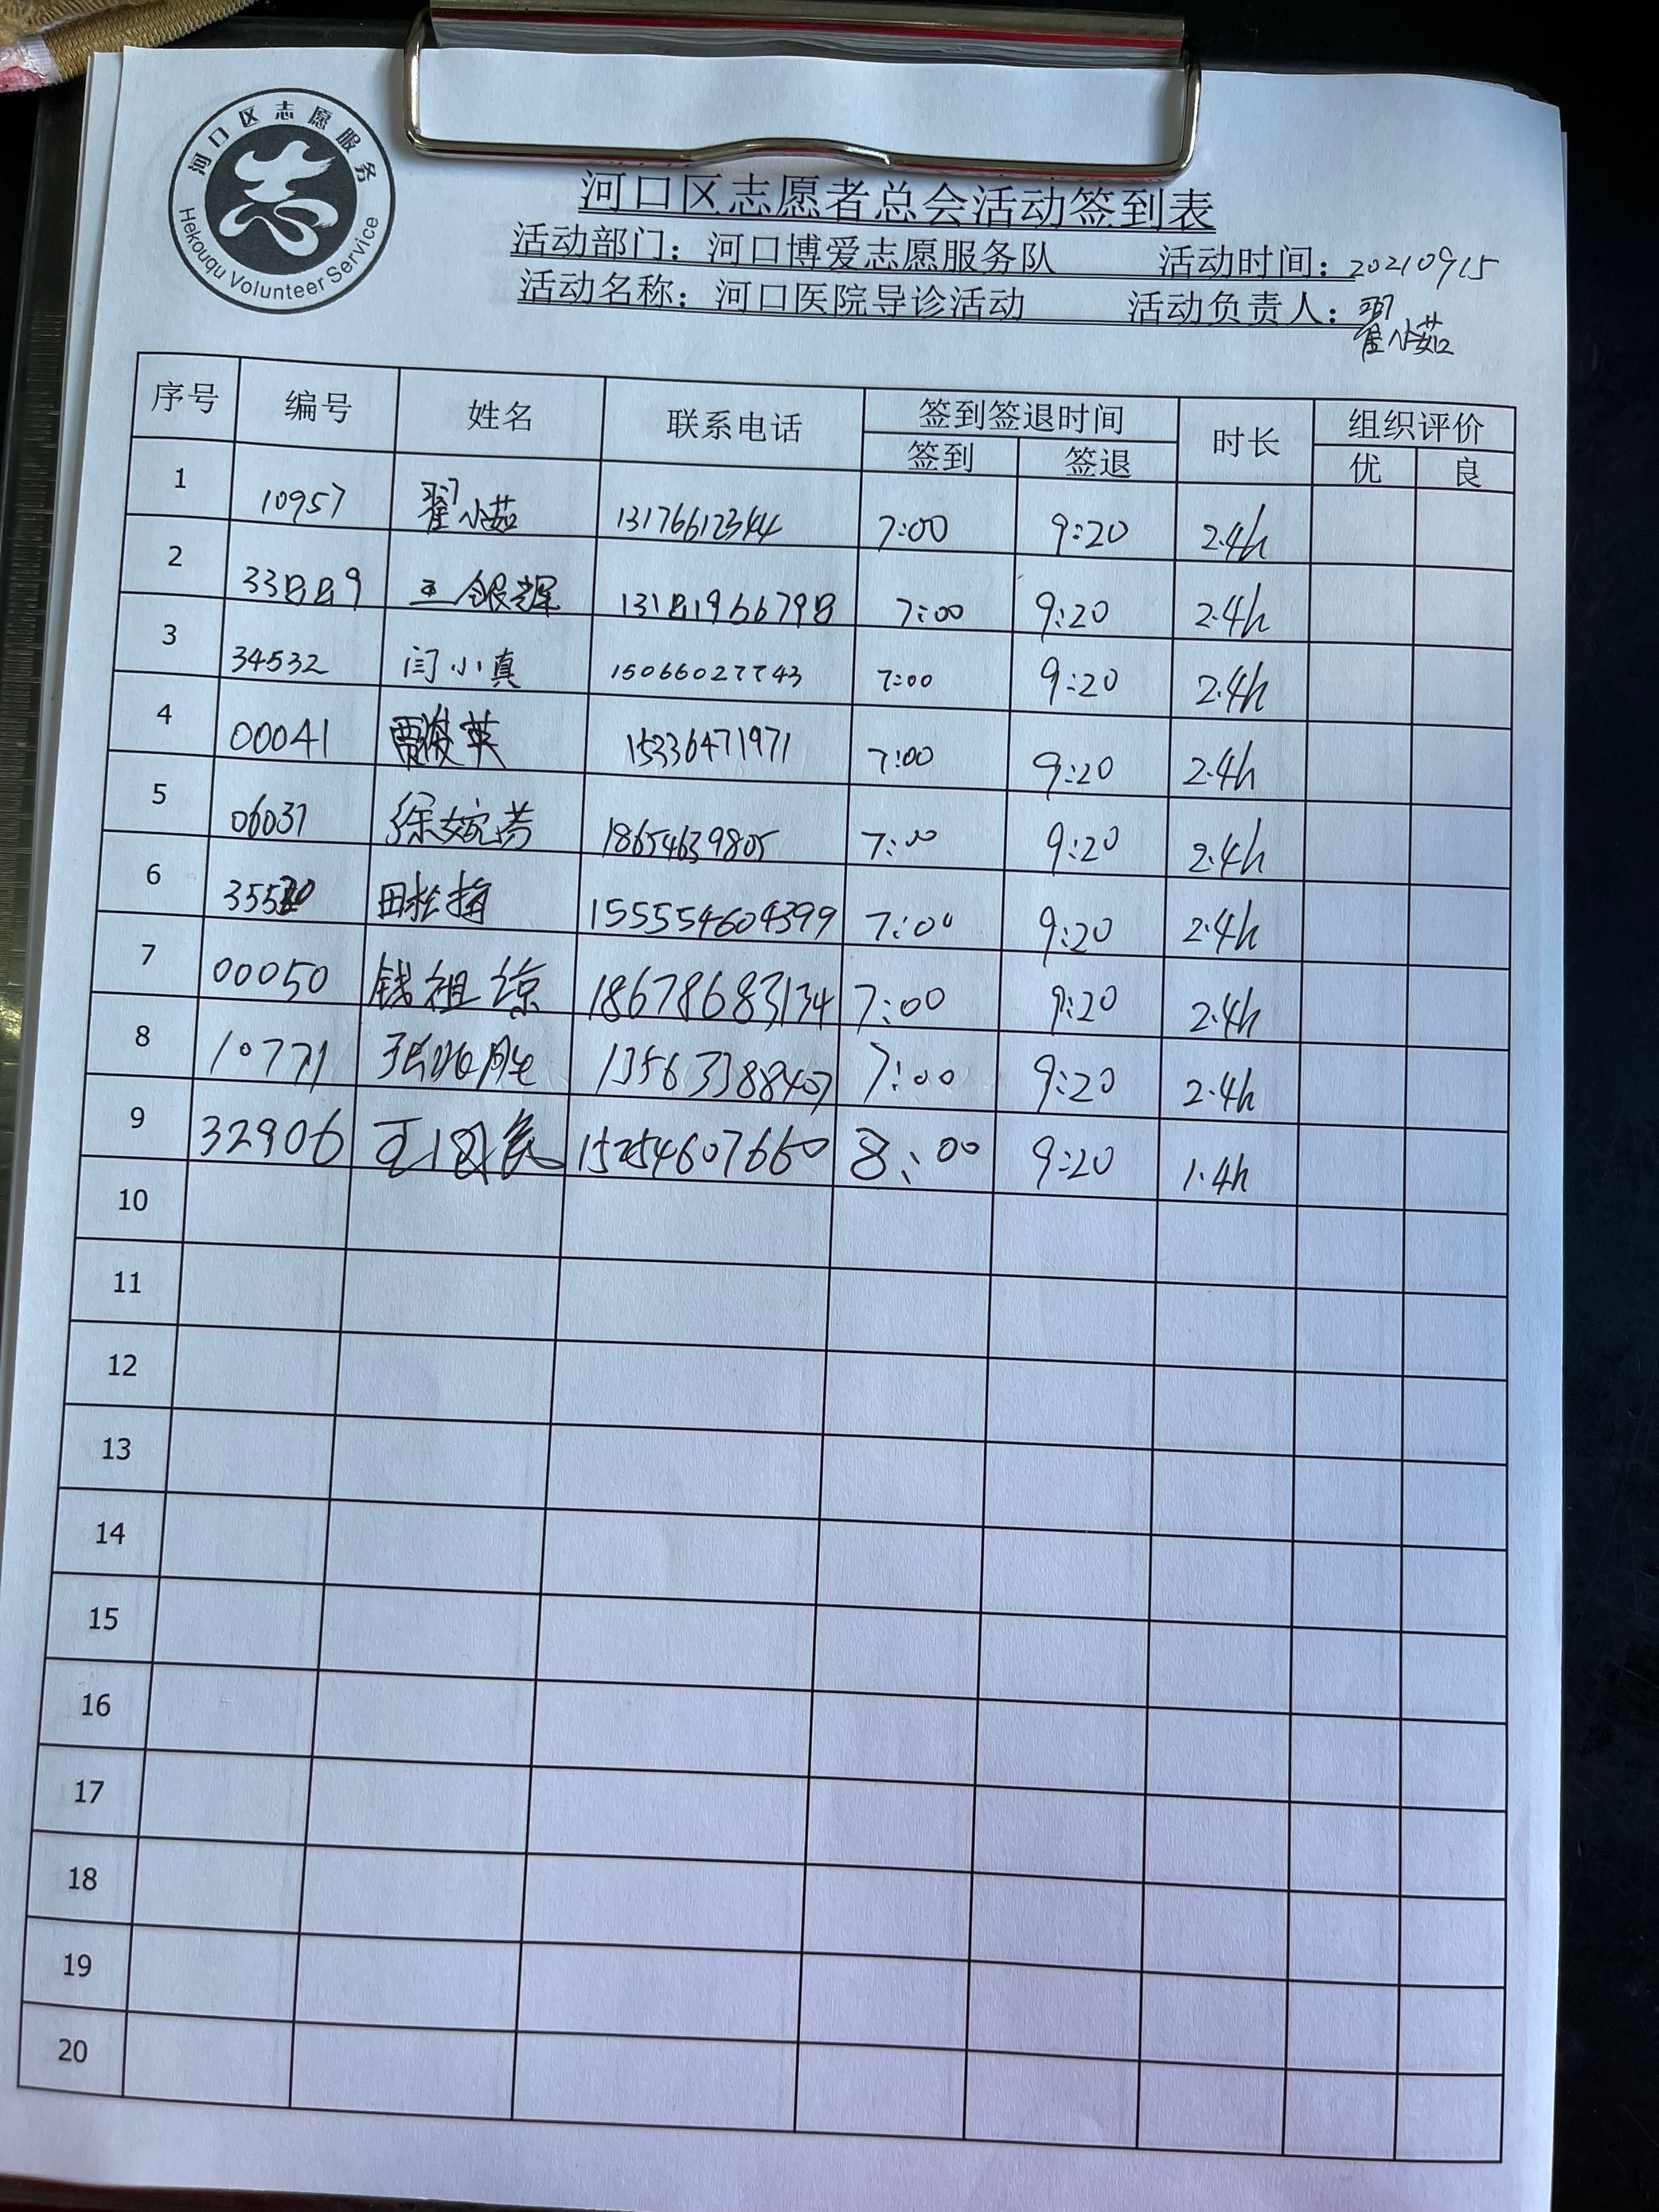 河口区志愿服务
Hekouqu Volunteer Service
河口区志愿者总会活动签到表
活动部门：河口博爱志愿服务队 活动时间：20210915
活动名称：河口医院导诊活动 活动负责人：翟小茹
序号 编号 姓名 联系电话 签到签退时间 时长 组织评价
签到 签退 优 良
1 10957 翟小茹 13176612344 7:00 9:20 2.4h
2 33889 王银辉 13181966798 7:00 9:20 2.4h
3 34532 闫小真 15066027743 7:00 9:20 2.4h
4 00041 贾俊英 15336471971 7:00 9:20 2.4h
5 06037 徐婉芳 18654639805 7:00 9:20 2.4h
6 田松梅 155554604399 7:00 9:20 2.4h
7 00050 钱祖谅 18678683134 7:00 9:20 2.4h
8 10771 13563388407 7:00 9:20 2.4h
9 32906 15254607660 8:00 9:20 1.4h
10
11
12
13
14
15
16
17
18
19
20